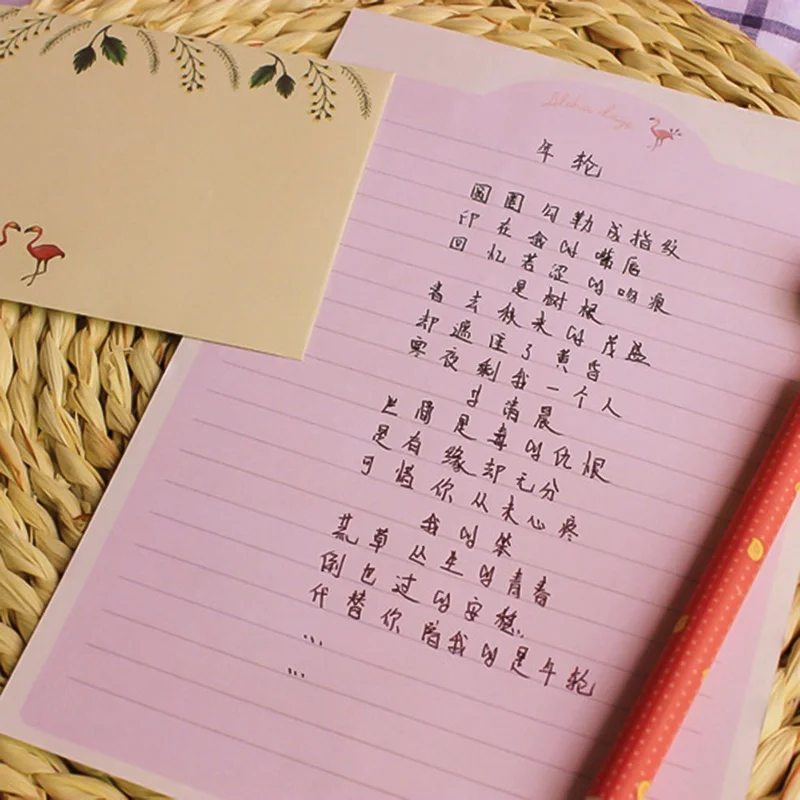 Aloha days
年轮
圆圈勾勒成指纹
印在我的嘴唇
回忆苦涩的吻痕
是树根
春去秋来的茂盛
却遮住了黄昏
寒夜剩我一个人
等清晨
世间最毒的仇恨
是有缘却无分
可惜你从未心疼
我的笨
荒草丛生的青春
倒也过的安稳..
代替你陪我的是年轮
...
...